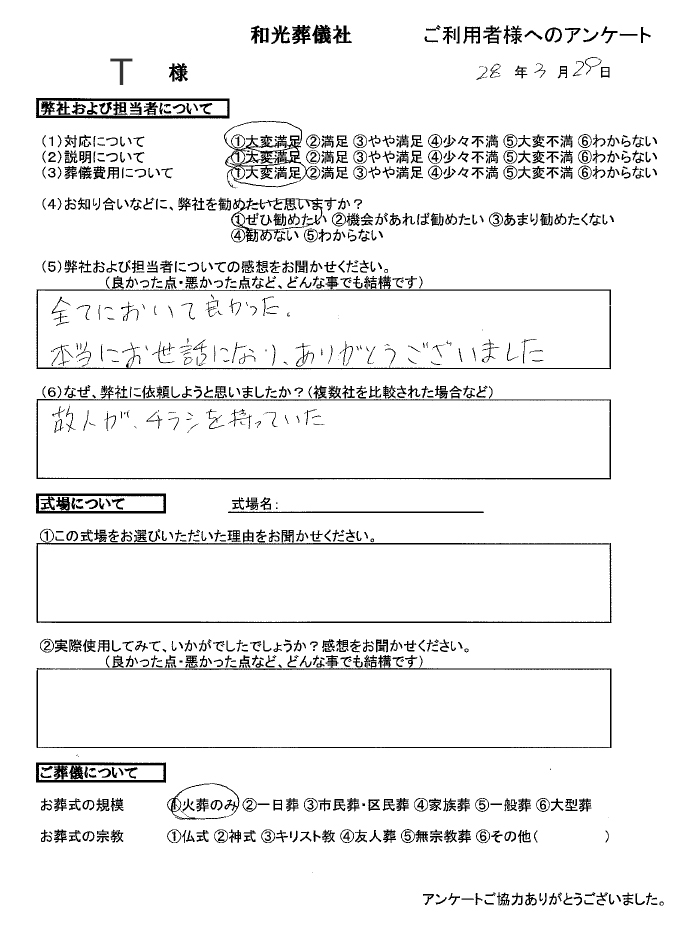 和光葬儀社 ご利用者様へのアンケート
T 様 28 年 3 月 29 日
弊社および担当者について
(1)対応について ①大変満足 ②満足 ③やや満足 ④少々不満 ⑤大変不満 ⑥わからない
(2)説明について ①大変満足 ②満足 ③やや満足 ④少々不満 ⑤大変不満 ⑥わからない
(3)葬儀費用について ①大変満足 ②満足 ③やや満足 ④少々不満 ⑤大変不満 ⑥わからない
(4)お知り合いなどに、弊社を勧めたいと思いますか？
①ぜひ勧めたい ②機会があれば勧めたい ③あまり勧めたくない
④勧めない ⑤わからない
(5)弊社および担当者についての感想をお聞かせください。
(良かった点・悪かった点など、どんな事でも結構です)
全てにおいて良かった。
本当にお世話になり、ありがとうございました
(6)なぜ、弊社に依頼しようと思いましたか？(複数社を比較された場合など)
故人が、チラシを持っていた
式場について 式場名：
①この式場をお選びいただいた理由をお聞かせください。
②実際使用してみて、いかがでしたでしょうか？感想をお聞かせください。
(良かった点・悪かった点など、どんな事でも結構です)
ご葬儀について
お葬式の規模 ①火葬のみ ②一日葬 ③市民葬・区民葬 ④家族葬 ⑤一般葬 ⑥大型葬
お葬式の宗教 ①仏式 ②神式 ③キリスト教 ④友人葬 ⑤無宗教葬 ⑥その他( )
アンケートご協力ありがとうございました。